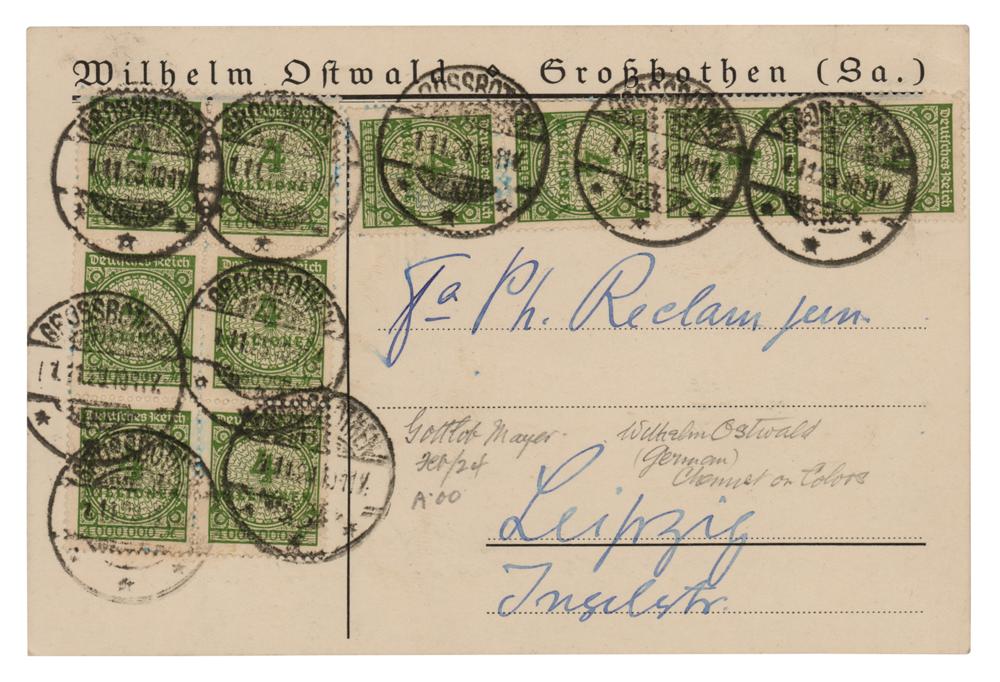 Wilhelm Ostwald Großbothen (Sa.)
GROSSBOTHEN
1.11.23.10-11V.
Deutsches Reich
4
MILLIONEN
4000000 M
Fa Ph. Reclam jun.
Gottlob Mayer
Feb/24
A.00
Wilhelm Ostwald
(German)
Chemist on Colors
Leipzig
Inselstr.